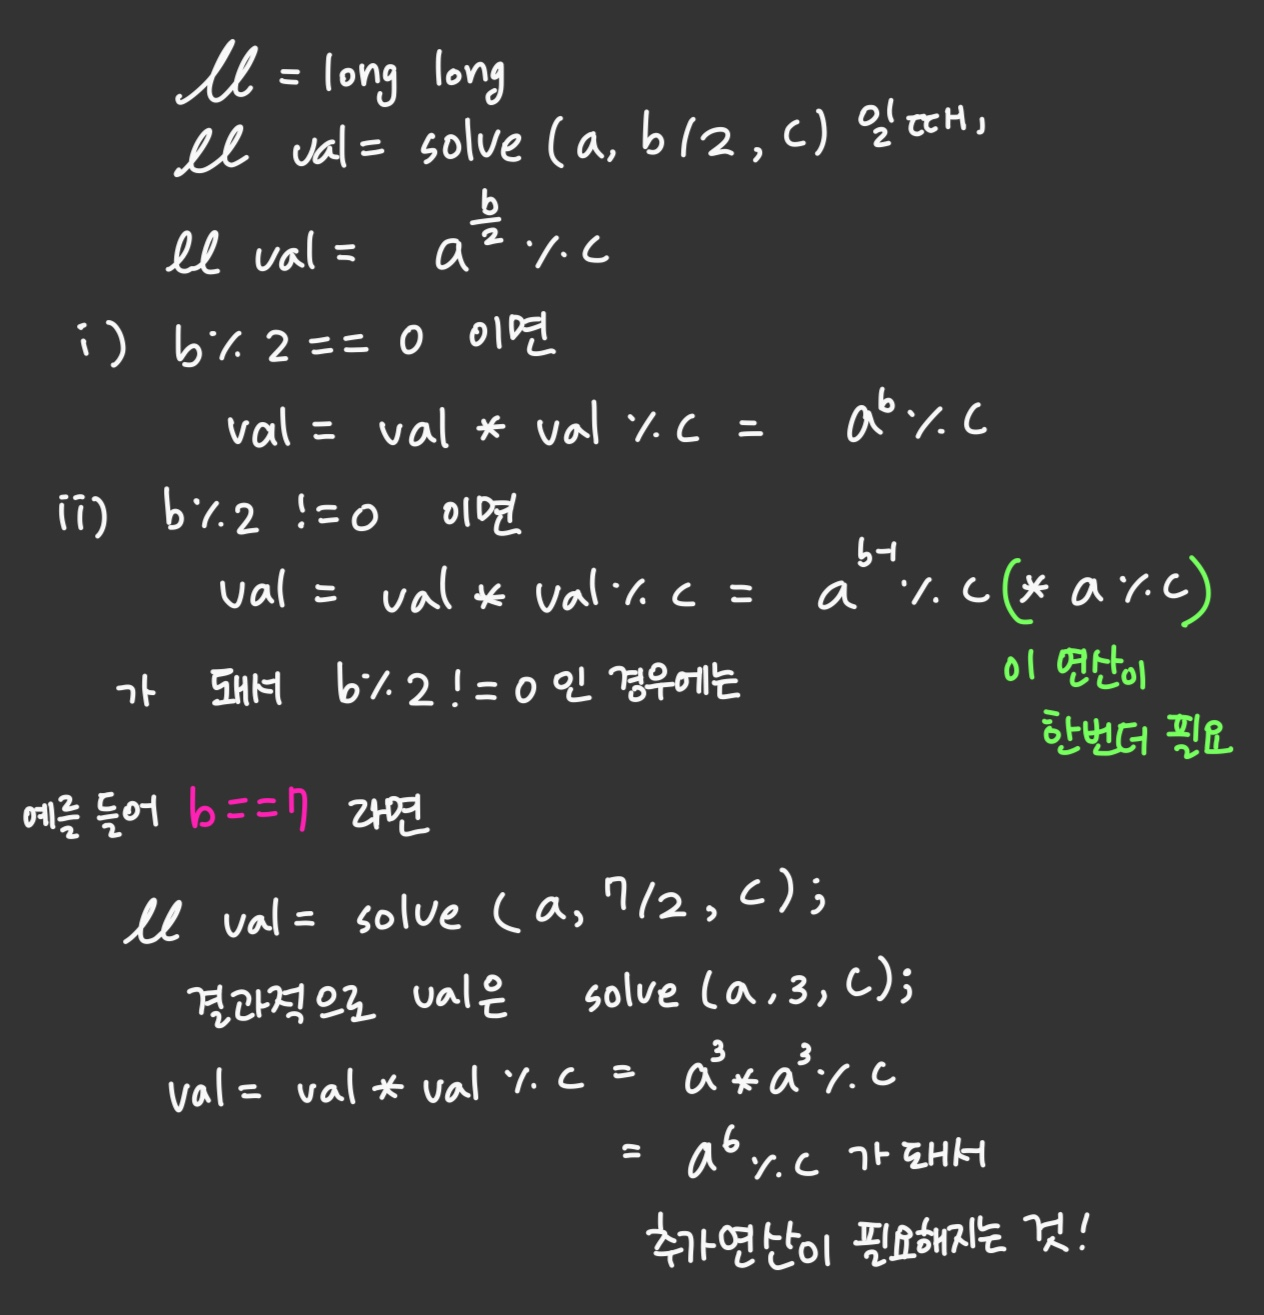 ll = long long
ll val = solve (a, b/2, c) 일 때,
ll val = a^(b/2) % c
i) b % 2 == 0 이면
val = val * val % c = a^b % c
ii) b % 2 != 0 이면
val = val * val % c = a^(b-1) % c (* a % c)
이 연산이
한번더 필요
가 돼서 b % 2 != 0 인 경우에는
예를 들어 b==7 라면
ll val = solve (a, 7/2, c);
결과적으로 val은 solve (a, 3, c);
val = val * val % c = a^3 * a^3 % c
= a^6 % c 가 돼서
추가연산이 필요해지는 것!